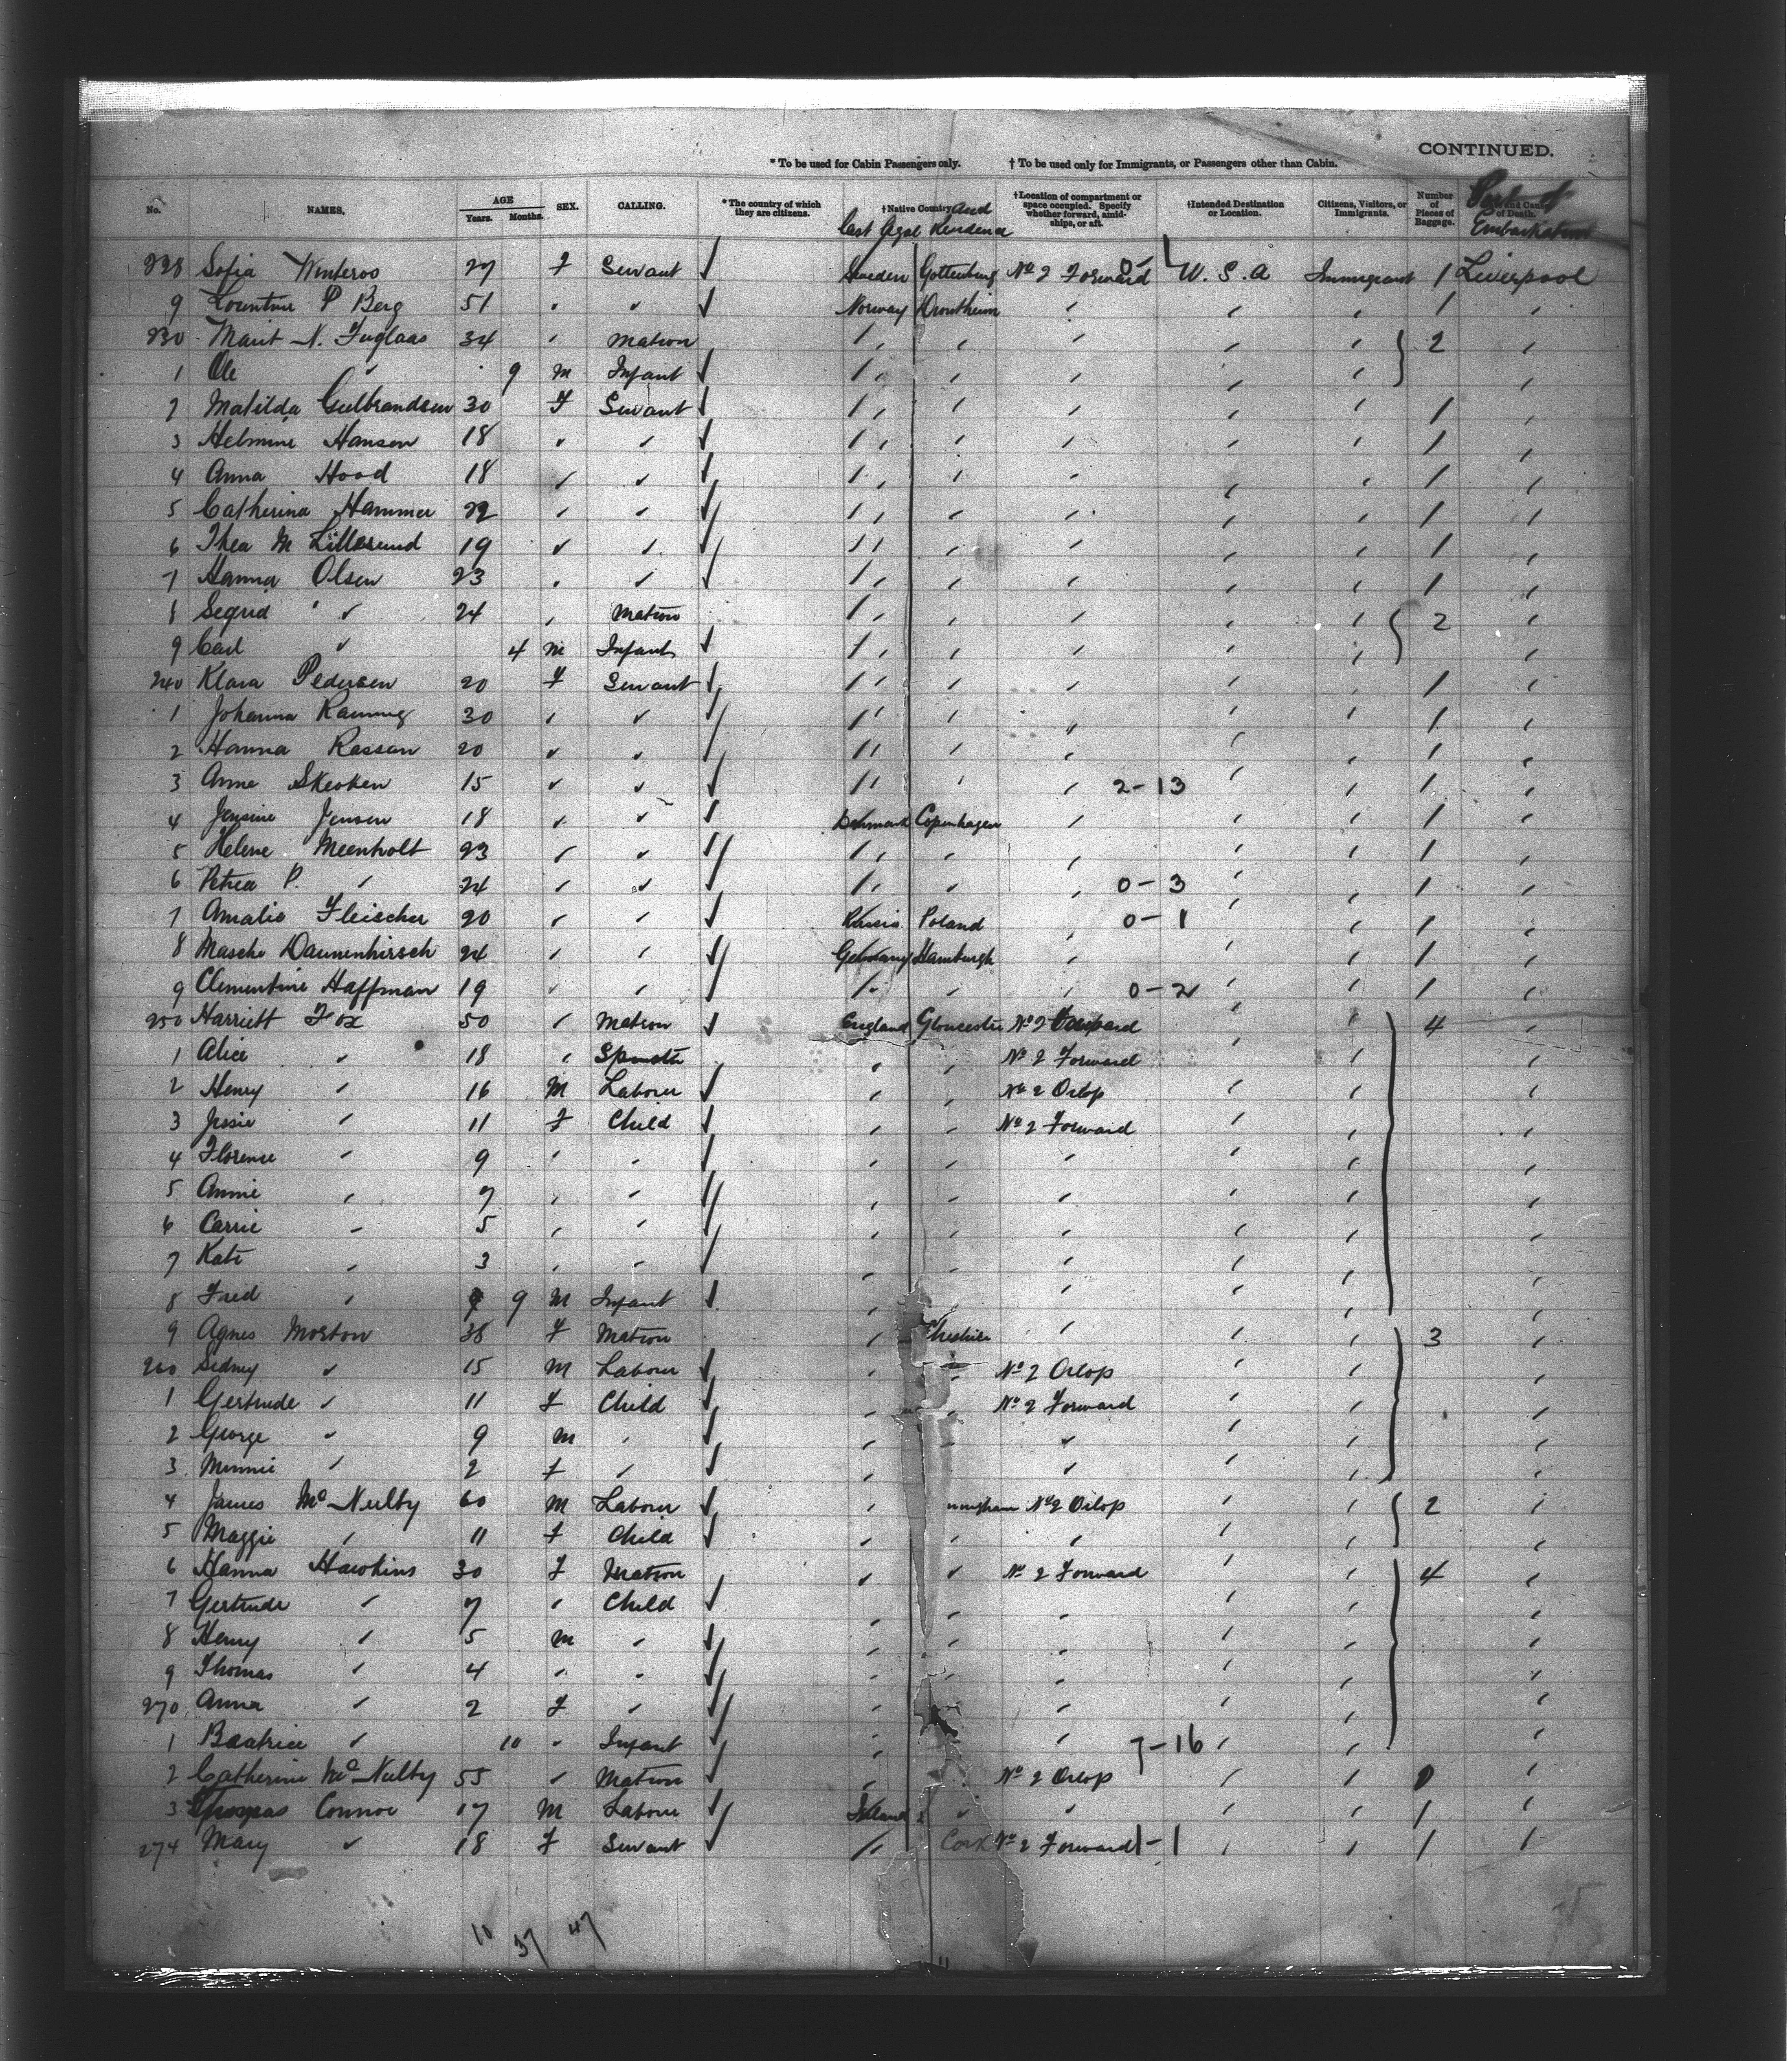 CONTINUED.
* To be used for Cabin Passengers only. † To be used only for Immigrants, or Passengers other than Cabin.
No. NAMES. AGE Years. Months. SEX. CALLING. * The country of which they are citizens. † Native Country and Last Legal Residence † Location of compartment or space occupied. Specify whether forward, amidships, or aft. † Intended Destination or Location. Citizens, Visitors, or Immigrants. Number of Pieces of Baggage. Port of Embarkation
228 Sofia 27 F Servant ✓ Sweden Gottenburg No 2 Forward U.S.A Immigrant 1 Liverpool
9 P Berg 51 " " ✓ Norway Drontheim " " " 1 "
230 Marit N. Fuglaas 34 " Matron " " " " " 2 "
1 Ole " 9 M Infant ✓ " " " " " "
2 Matilda Gulbrandsen 30 F Servant ✓ " " " " " 1 "
3 Helmine Hansen 18 " " ✓ " " " " " 1 "
4 Anna Hood 18 " " ✓ " " " " " 1 "
5 Catherina Hammer 22 " " ✓ " " " " " 1 "
6 Thea M 19 " " ✓ " " " " " 1 "
7 Hanna Olsen 23 " " ✓ " " " " " 1 "
8 Segrid " 24 " Matron " " " " " 2 "
9 Carl " 4 M Infant ✓ " " " " " "
240 Klara Pedersen 20 F Servant ✓ " " " " " 1 "
1 Johanna 30 " " ✓ " " " " " 1 "
2 Hanna 20 " " ✓ " " " " " 1 "
3 Anne 15 " " ✓ " " " 2-13 " " 1 "
4 Jensine Jensen 18 " " ✓ Denmark Copenhagen " " " 1 "
5 Helene Meenholt 23 " " ✓ " " " " " 1 "
6 Petrea P. " 24 " " ✓ " " " 0-3 " " 1 "
7 Amalie Fleischer 20 " " ✓ Russia Poland " 0-1 " " 1 "
8 Masche Dannenhirsch 24 " " ✓ Germany Hamburgh " " " 1 "
9 Clementine Haffman 19 " " ✓ " " " 0-2 " " 1 "
250 Harriett Fox 50 " Matron ✓ England Gloucester No 2 Forward " " 4 "
1 Alice " 18 " Spinster " " No 2 Forward " " "
2 Henry " 16 M Labourer ✓ " " No 2 Orlop " " "
3 Jessie " 11 F Child ✓ " " No 2 Forward " " "
4 Florence " 9 " " ✓ " " " " " "
5 Annie " 7 " " ✓ " " " " " "
6 Carrie " 5 " " ✓ " " " " " "
7 Kate " 3 " " ✓ " " " " " "
8 Fred " 9 M Infant ✓ " " " " "
9 Agnes Morton 38 F Matron " Cheshire " " " 3 "
260 Sidney " 15 M Labourer ✓ " " No 2 Orlop " " "
1 Gertrude " 11 F Child ✓ " " No 2 Forward " " "
2 George " 9 M " ✓ " " " " " "
3 Minnie " 2 F " ✓ " " " " " "
4 James McNulty 60 M Labourer ✓ " No 2 Orlop " " 2 "
5 Maggie " 11 F Child ✓ " " " " " "
6 Hanna Hawkins 30 F Matron " " No 2 Forward " " 4 "
7 Gertrude " 7 " Child ✓ " " " " " "
8 Henry " 5 M " ✓ " " " " " "
9 Thomas " 4 " " ✓ " " " " " "
270 Anna " 2 F " ✓ " " " " " "
1 Beatrice " 10 " Infant ✓ " " 7-16 " " "
2 Catherine McNulty 55 " Matron ✓ " No 2 Orlop " " "
3 Thomas Connor 17 M Labourer ✓ Ireland " " " " 1 "
274 Mary " 18 F Servant ✓ " Cork No 2 Forward 1-1 " " 1 "
10 37 47